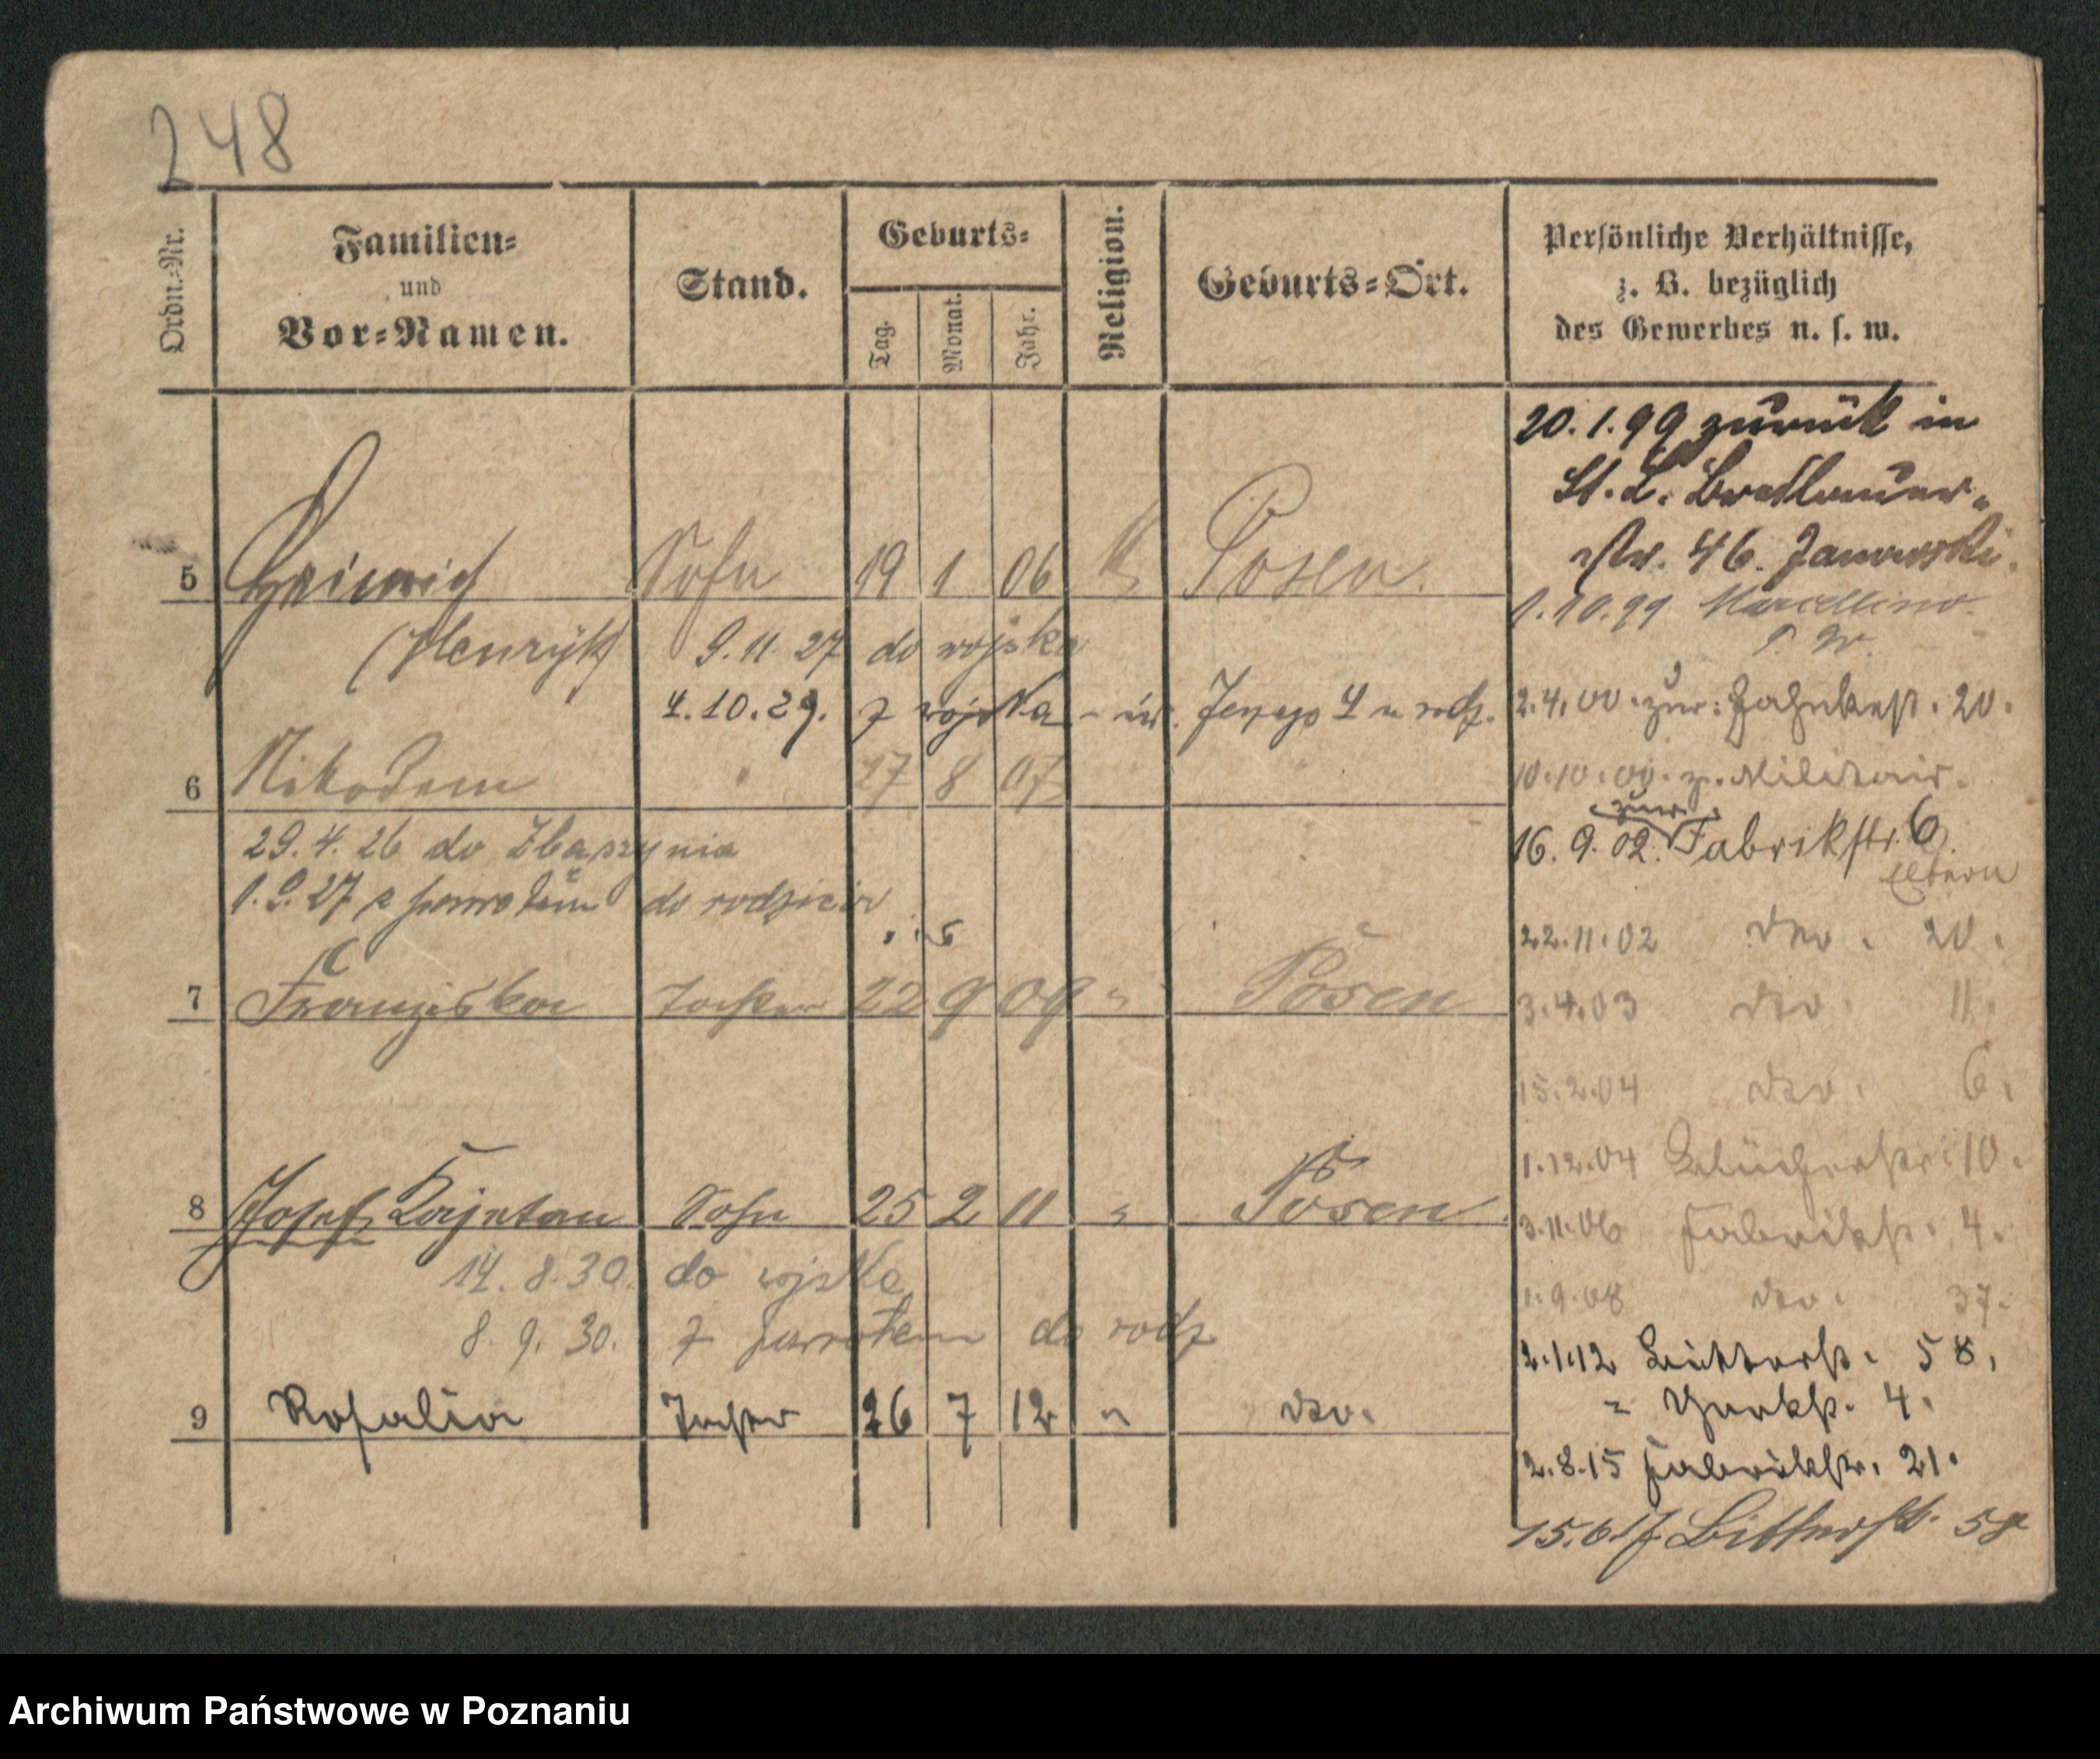 248
Ordn.-Nr.
Familien-
und
Vor-Namen.
Stand.
Geburts-
Tag.
Monat.
Jahr.
Religion.
Geburts-Ort.
Persönliche Verhältnisse,
z. B. bezüglich
des Gewerbes u. s. w.
5 Heinrich Sohn 19 1 06 Posen.
(Henryk) 9.11.27 do wojska
4.10.29. z wojska
6 Nikodem " 27 8 07
29.4.26 do Zbaszynia
1.9.27 z powrotem do rodziców
7 Franziska Tochter 22 9 09 " Posen
8 Josef Kajetan Sohn 25 2 11 " Posen
14.8.30. do wojska
8.9.30. z powrotem do rodz
9 Rosalia Tochter 26 7 12 " do.
20.1.99 zurück in
St. L. Breslauer-
str. 46.
1.10.99
2.4.00 zur. 20.
10.10.00. z. Militair.
zur.
16.9.02. Fabrikstr. 6
Eltern
22.11.02 do. 20.
3.4.03 do. 11.
15.2.04 do. 6.
1.12.04 Blücherstr. 10.
3.11.06 Fabrikstr. 4.
1.9.08 do. 37.
2.1.12 Bitterstr. 58.
" Yorkstr. 4.
2.8.15 Fabrikstr. 21.
15.6.17 Bitterstr. 58
Archiwum Państwowe w Poznaniu